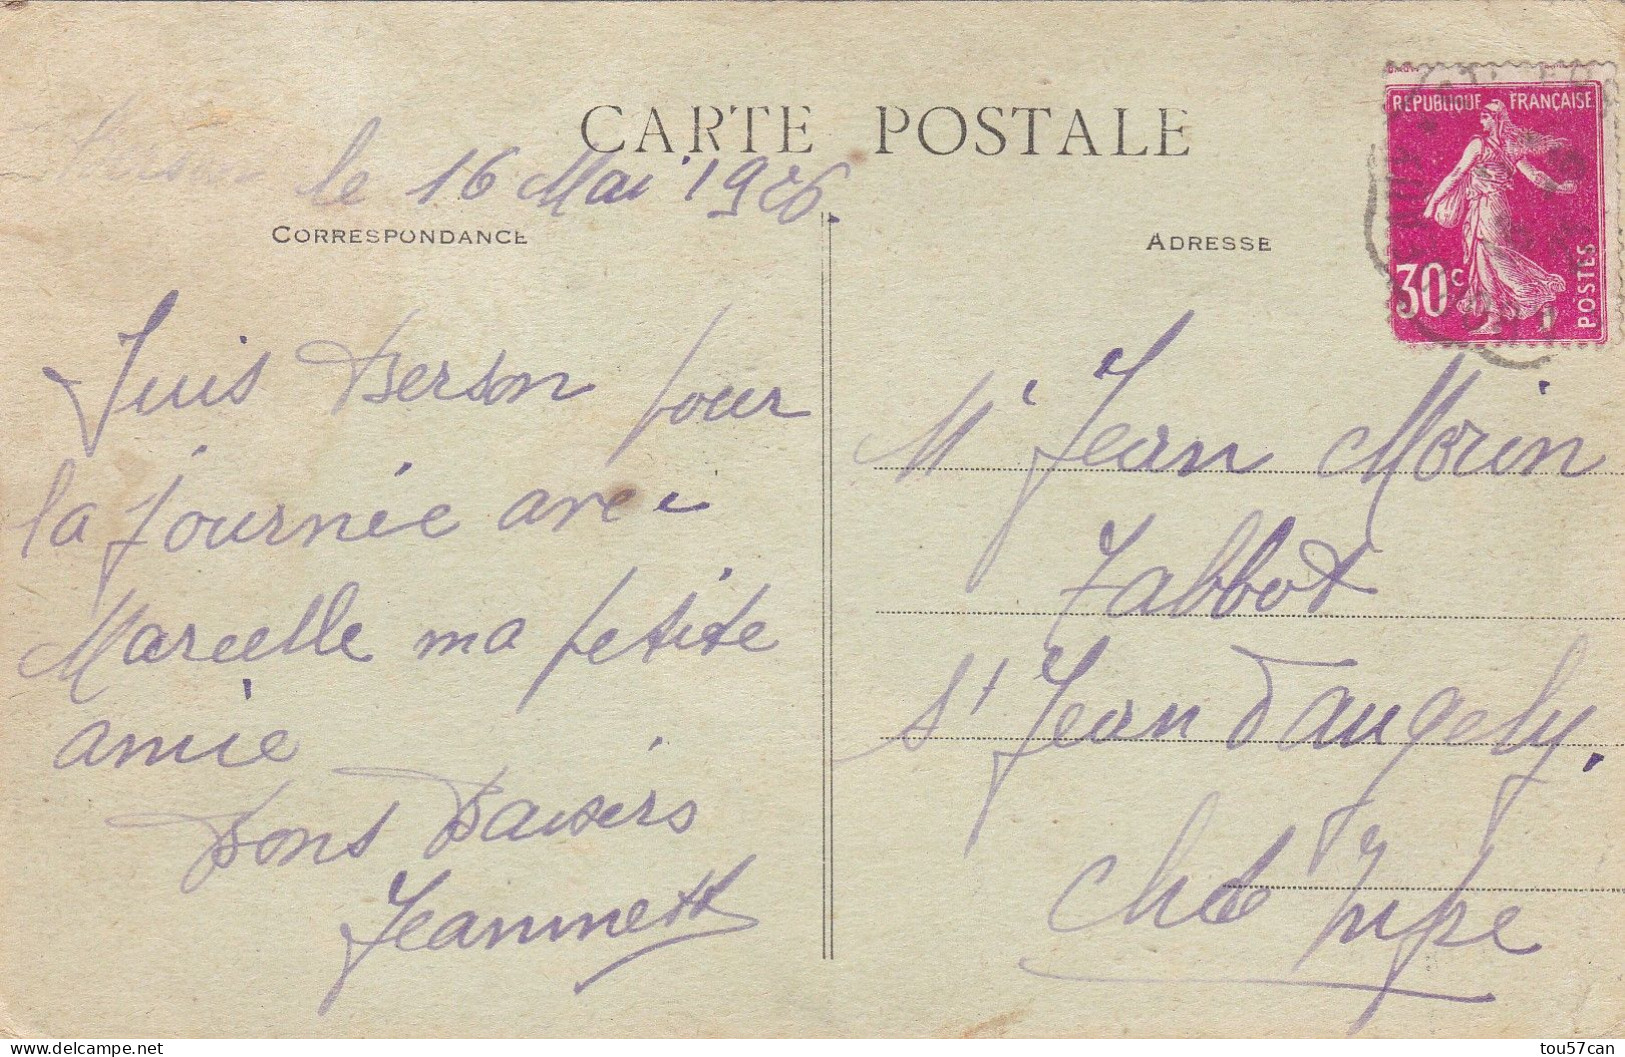 CARTE POSTALE
le 16 Mai 1926.
CORRESPONDANCE
ADRESSE
RÉPUBLIQUE FRANÇAISE
30c
POSTES
Suis Berson pour
la journée avec
Marcelle ma petite
amie
Bons Baisers
Jeannette
Mr Jean Morin
Tabbot
St Jean d'angely.
Che Infre
tou57can